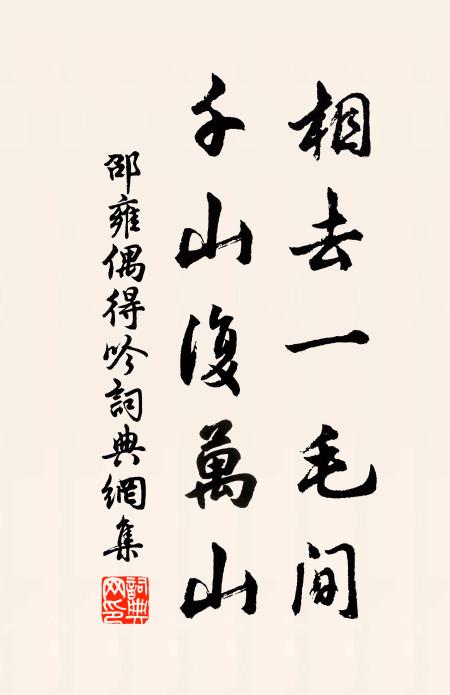 相去一毛间
千山復萬山
邵雍偶得吟詞典網集
詞典網印